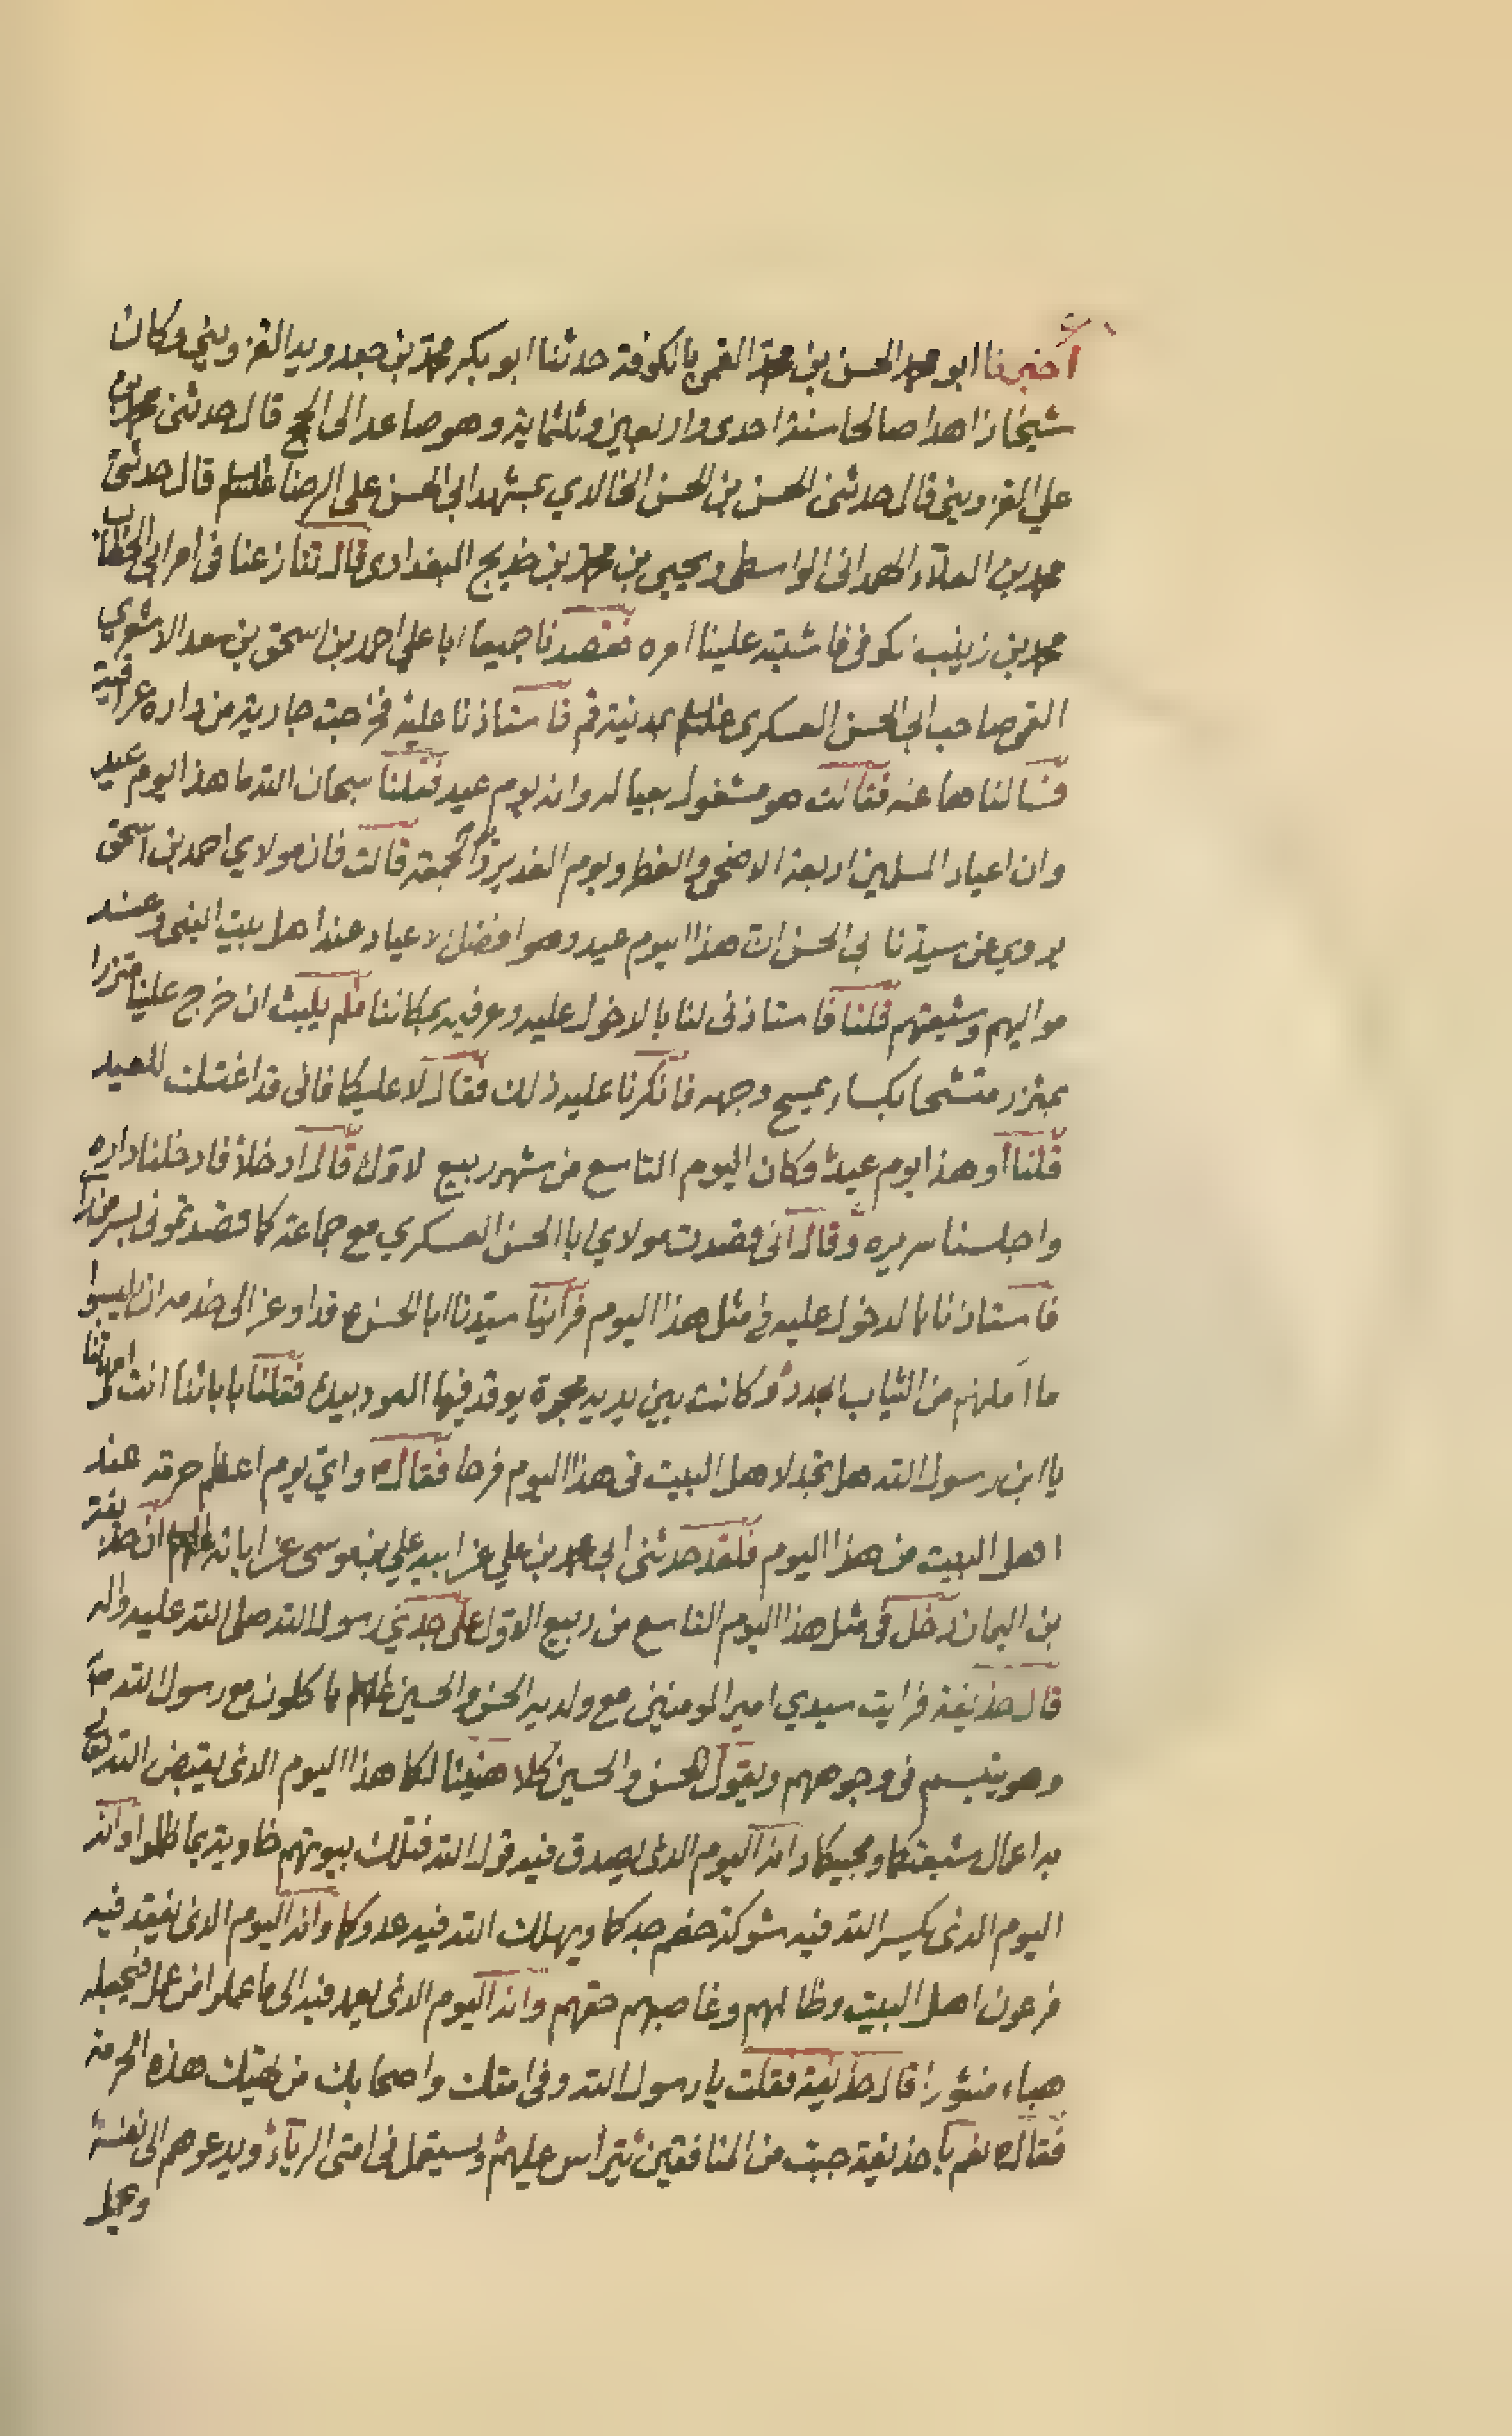 اخبرنا ابو محمد الحسن بن محمد القمي بالكوفة حدثنا ابو بكر محمد بن جعدويه القزويني وكان
شيخا زاهدا صالحا سنة احدى واربعين وثلثماية وهو صاعد الى الحج قال حدثنى محمد بن
علي القزوينى قال حدثنى الحسن بن الحسن الخالدي بمشهد ابى الحسن على الرضا عليه السلام قال حدثنى
محمد بن العلآء الهمدانى الواسطى ويحيى بن محمد بن جريج البغدادى قال تنازعنا فى امر ابى الخطاب
محمد بن زينب كوفى فاشتبه علينا امره فقصدنا جميعا ابا علي احمد بن اسحق بن سعد الاشعري
القمى صاحب ابى الحسن العسكرى عليه السلام بمدينة قم فاستاذنا عليه فخرجت جارية من داره عراقية
فسالناها عنه فقالت هو مشغول بعياله وانه يوم عيد فقلنا سبحان الله ما هذا اليوم عيد
وان اعياد المسلمين اربعة الاضحى والفطر ويوم الغدير والجمعة قالت فان مولاي احمد بن اسحق
يروي عن سيدنا ابى الحسن ان هذا اليوم عيد وهو افضل الاعياد عند اهل بيت النبى وعند
مواليهم وشيعتهم قلنا فاستاذنى لنا بالدخول عليه وعرفيه بمكاننا فلم يلبث ان خرج علينا متزرا
بمئزر متشحا بكساء يمسح وجهه فانكرنا عليه ذلك فقال لا عليكما فانى قد اغتسلت للعيد
قلنا أوهذا يوم عيد وكان اليوم التاسع من شهر ربيع الاول قال ادخلا فادخلنا داره
واجلسنا سريره وقال انى قصدت مولاي ابا الحسن العسكري مع جماعة كما قصدتمونى بسر من راى
فاستاذنا بالدخول عليه فى مثل هذا اليوم فرأينا سيدنا ابا الحسن ع قد اوعز الى خدمه ان يلبسوا
ما امكنهم من الثياب الجدد وكانت بين يديه مجمرة يوقد فيها العود بيده فقلنا بابائنا انت وامهاتنا
يا ابن رسول الله هل تجد لاهل البيت فى هذا اليوم فرحا فقال واي يوم اعظم حرمة عند
اهل البيت من هذا اليوم فلقد حدثنى ابى محمد بن علي عن ابيه علي بن موسى عن ابائه عليهم السلام ان حذيفة
بن اليمان دخل فى مثل هذا اليوم التاسع من ربيع الاول على جدي رسول الله صلى الله عليه واله
قال حذيفة فرايت سيدي امير المومنين مع ولديه الحسن والحسين عليهم السلام ياكلون مع رسول الله ص
وهو يتبسم فى وجوههم ويقول للحسن والحسين كلا هنيئا لكما هذا اليوم الذى يقبض الله تعالى
به اعمال شيعتكما ومحبيكما وانه اليوم الذى يصدق فيه قول الله فتلك بيوتهم خاوية بما ظلموا وانه
اليوم الذى يكسر الله فيه شوكة خصم جدكما ويهلك الله فيه عدوكما وانه اليوم الذى يفقد فيه
فرعون اهل البيت وظالمهم وغاصبهم حقهم وانه اليوم الذى يعمد فيه الى ما عملوا من عمل فيجعله
هباء منثورا قال حذيفة فقلت يا رسول الله وفى امتك واصحابك من يهتك هذه الحرمة
فقال نعم يا حذيفة جبت من المنافقين يتراس عليهم ويستعمل فى امتى الرياء ويدعوهم الى نفسه